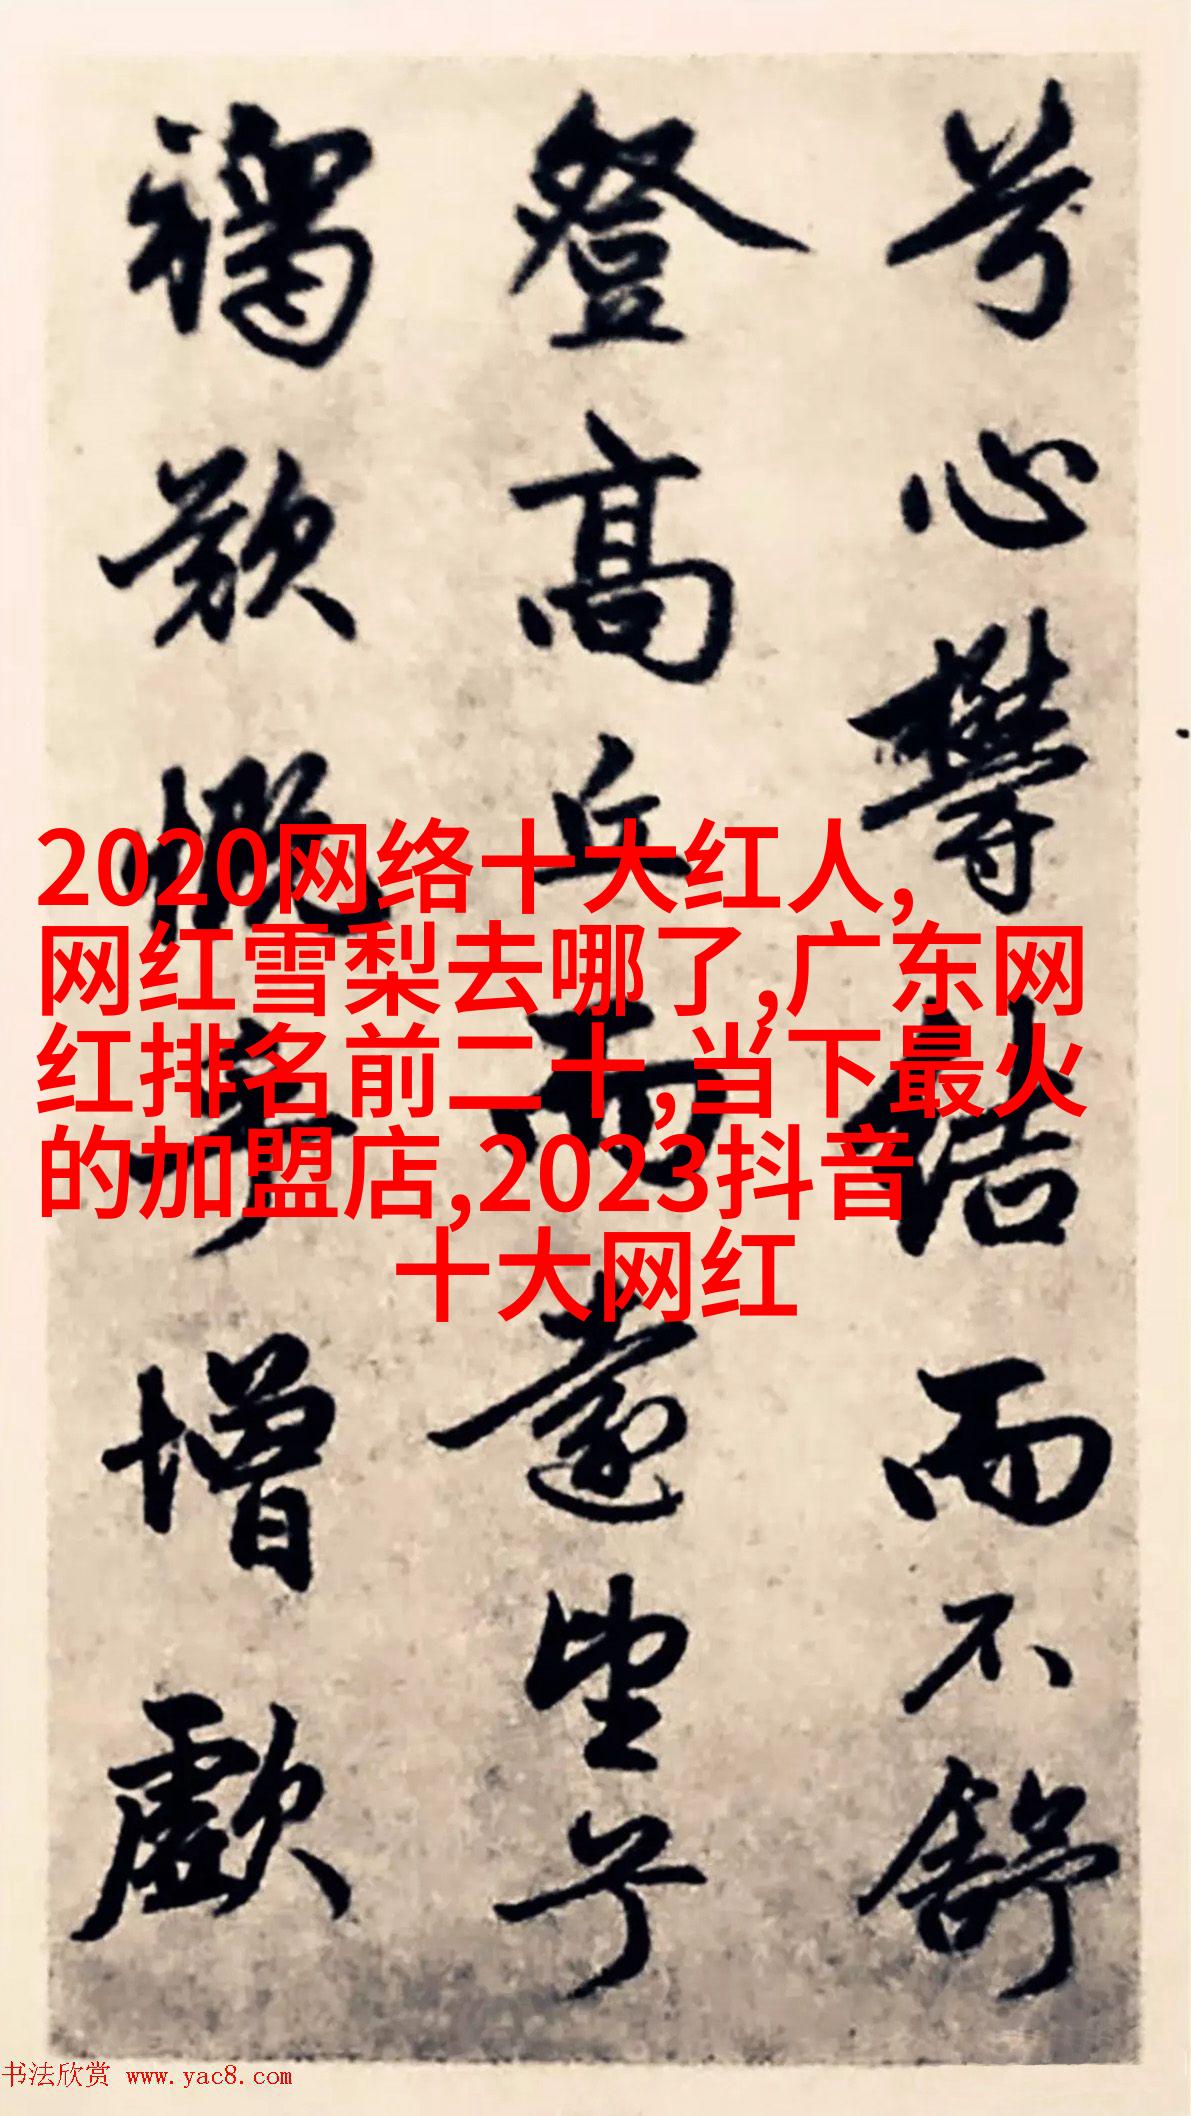 2020网络十大红人,
网红雪梨去哪了,广东网
红排名前二十,当下最火
的加盟店,2023抖音
十大网红
兮心欝結而不舒
登高丘而遠望兮
增歔
书法欣赏 www.yac8.com